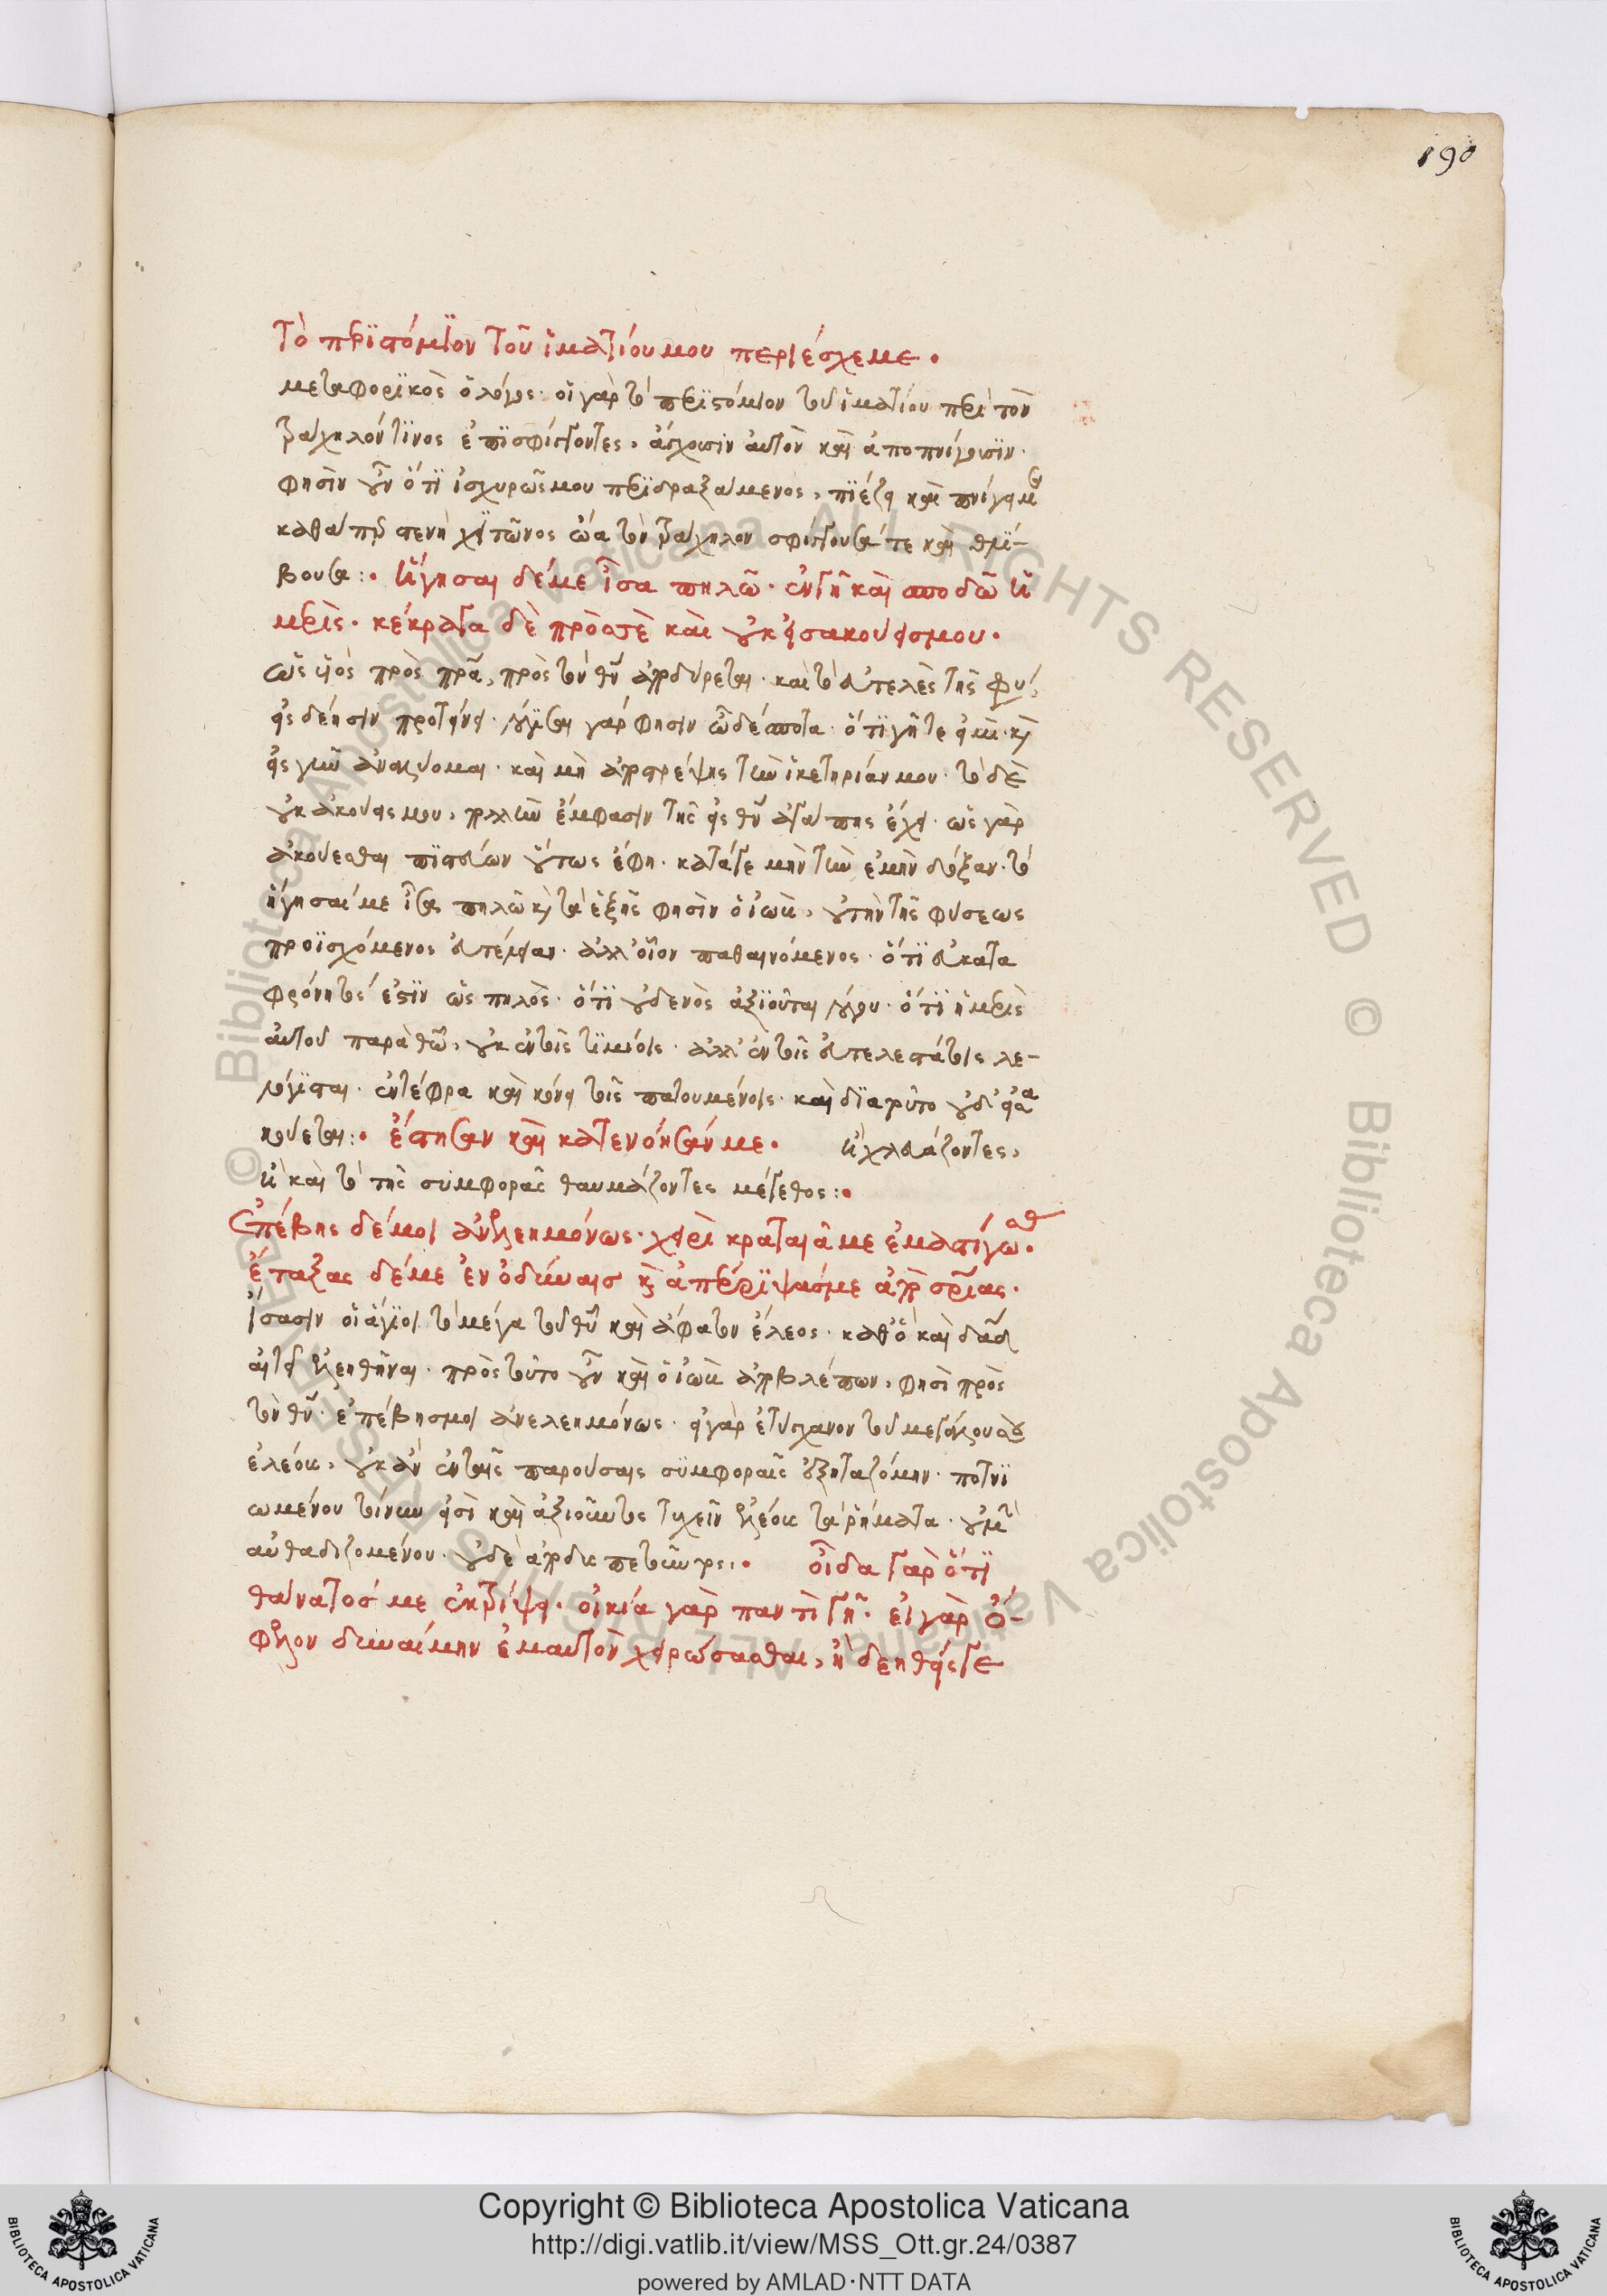 190
Τὸ πεϊστόμϊον τοῦ ἱματίου μου περιέσχε με.
μεταφορϊκὸς ὁ λόγος· οἱ γὰρ τὸ πεϊστόμιον τοῦ ἱματίου περὶ τὸν
τράχηλόν τϊνος ἐπϊσφίγγοντες, ἄγχουσιν αὐτὸν καὶ ἀποπνίγουσϊν·
φησὶν οὖν ὅτϊ ἰσχυρῶς μου περϊδραξάμενος, πϊέζει καὶ πνίγει με
καθάπερ στενὴ χϊτῶνος ὤα τὸν τράχηλον σφίγγουσά τε καὶ θλί-
βουσα:· ἥγησαι δέ με ἶσα πηλῶ· ἐν γῆ καὶ σποδῶ ἡ
μερὶς· κέκραγα δὲ πρὸς σὲ καὶ οὐκ εἰσακούεις μου.
ὡς υἱὸς πρὸς πρα, πρὸς τὸν θν ἀποδύρεται· καὶ τὸ εὐτελὲς τῆς φύ-
εἰς δέησιν προτείνει· γάρ φησιν ὦ δέσποτα· ὅτϊ γῆ τε εἰμὶ κ
εἰς γῆν ἀναλύομαι· καὶ μὴ ἀποστρέψης τὴν ἱκετηρίαν μου· τὸ δὲ
οὐκ ἀκούεις μου, πολλὴν ἔμφασιν τῆς εἰς θν ἀγάπης ἔχει· ὡς γὰρ
ἀκούεσθαι πϊστεύων οὕτως ἔφη· κατάγε μὴν τὴν ἐμὴν δόξαν· τὸ
ἥγησαί με ἶσα πηλῶ κ τὰ ἑξῆς φησὶν ὁ ἰὼβ, οὐ τὴν τῆς φύσεως
προϊσχόμενος εὐτέλειαν· ἀλλ' οἷον παθαινόμενος· ὅτϊ εὐκατα
φρόνητός ἐστϊν ὡς πηλὸς· ὅτϊ οὐδενὸς ἀξϊοῦται λόγου· ὅτϊ ἡ μερὶς
αὐτοῦ παρὰ θῶ, οὐκ ἐν τοῖς τϊμίοις· ἀλλ' ἐν τοῖς εὐτελεστάτοις λε-
λόγϊσται· ἐν τέφρα καὶ κόνει τοῖς πατουμένοις· καὶ δϊα τοῦτο οὐδ' εἰσα
κούεται:· ἔστησαν καὶ κατενόησάν με. ἢ χλευάζοντες,
ἢ καὶ τὸ τῆς συμφορᾶς θαυμάζοντες μέγεθος:·
Ἐπέβης δέ μοι ἀνελεημόνως· χειρὶ κραταιᾶ με ἐμαστίγωσ.
ἔταξας δέ με ἐν ὀδύναισ κ ἀπέρϊψάς με ἀπὸ σρίας.
ἴσασιν οἱ ἅγϊοι τὸ μέγα τοῦ θυ καὶ ἄφατον ἔλεος· καθ' ὃ καὶ δαδ
αἰτεῖ ἐλεηθῆναι· πρὸς τοῦτο οὖν καὶ ὁ ἰὼβ ἀποβλέπων, φησὶ πρὸς
τὸν θν· ἐπέβης μοι ἀνελεημόνως· εἰ γὰρ ἐτύγχανον τοῦ μεγάλου σου
ἐλέους, οὐκ ἂν ἐν ταῖς παρούσαις συμφοραῖς ἐξηταζόμην· ποτνϊ
ωμένου τοίνυν εἰσὶ καὶ ἀξιοῦντος τυχεῖν ἐλέους τὰ ῥήματα· οὐ μὴν
αὐθαδιζομένου· οὐδὲ οἶδα γὰρ ὅτϊ
θάνατός με ἐκτρίψει· οἰκία γὰρ παντὶ γῆ· εἰ γὰρ ὄ-
φελον δυναίμην ἐμαυτὸν χειρώσασθαι, ἢ δεηθείς γε
Copyright © Biblioteca Apostolica Vaticana
http://digi.vatlib.it/view/MSS_Ott.gr.24/0387
powered by AMLAD·NTT DATA